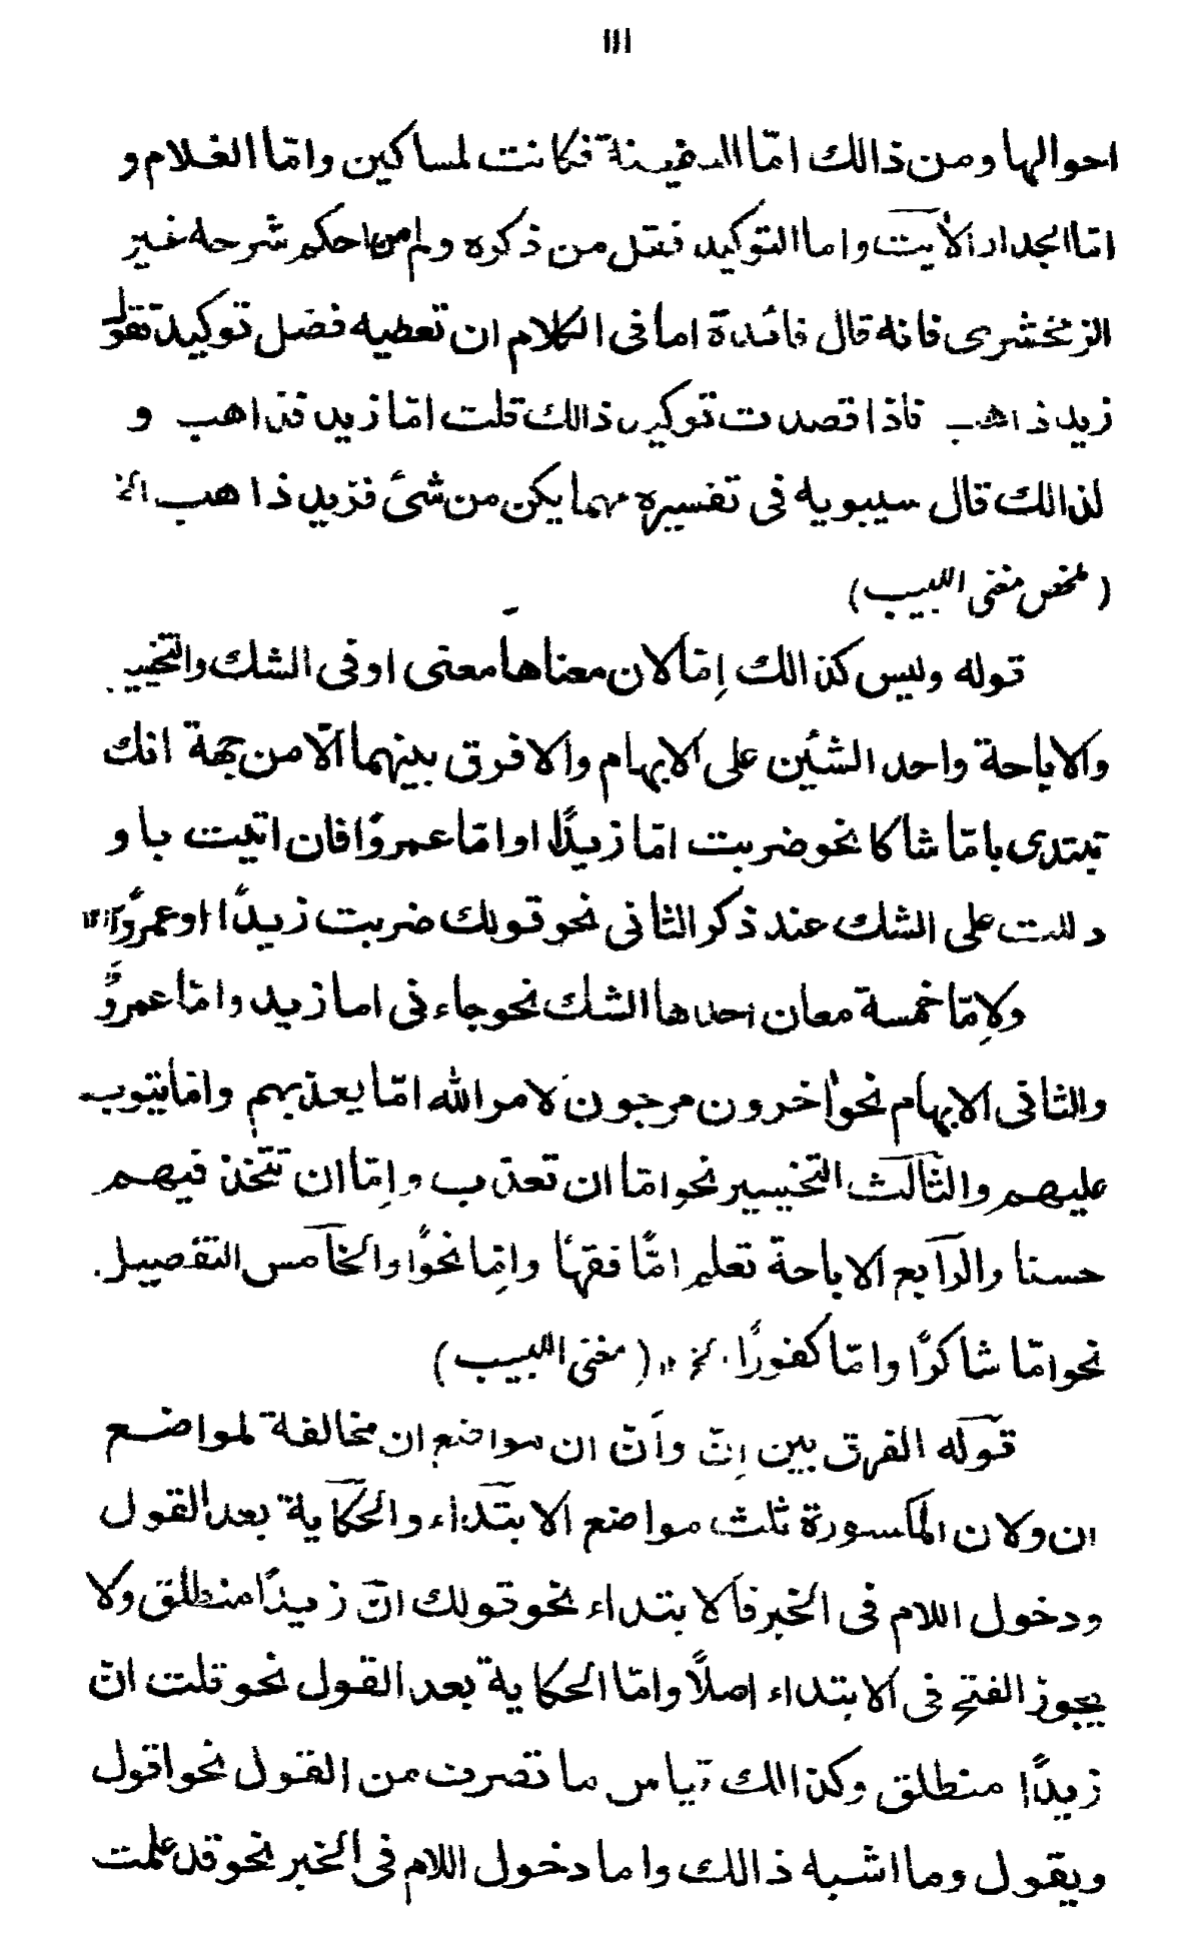 ١١١
احوالها ومن ذالك امّا السفينة فكانت لمساكين وامّا الغلام و
امّا الجدار الاٰيت واما التوكيد فقل من ذكره ولم من احكم شرحه غير
الزمخشرى فانه قال فائدة اما فى الكلام ان تعطيه فضل توكيد تقول
زيد ذاهب فاذا قصدت توكيد ذالك قلت امّا زيد فذاهب و
لذالك قال سيبويه فى تفسيره مهما يكن من شئ فزيد ذاهب الخ
(ملخص مغنى اللبيب)
قوله وليس كذالك اِمّا لان معناها معنى او فى الشك والتخيير
والاباحة واحد الشئين على الابهام والا فرق بينهما الّا من جهة انك
تبتدى بامّا شاكا نحو ضربت امّا زيدًا او امّا عمروًا فان اتيت باو
دللت على الشك عند ذكر الثانى نحو قولك ضربت زيدًا اوعمروًا ١٢
ولاِمّا خمسة معان احدها الشك نحو جاء فى اما زيد وامّا عمروٌ
والثانى الابهام نحو اٰخرون مرجون لامر الله امّا يعذبهم وامّا يتوب
عليهم والثالث التخيير نحو امّا ان تعذب واِمّا ان تتّخذ فيهم
حسنا والرابع الاباحة تعلم امّا فقهًا واِمّا نحوًا والخامس التفصيل.
نحو امّا شاكرًا وامّا كفورًا. الخ ١٢ (مغنى اللبيب)
قوله الفرق بين اِنّ واَنّ ان مواضع ان مخالفة لمواضع
ان ولان المكسورة ثلث مواضع الابتداء والحكاية بعد القول
ودخول اللام فى الخبر فالابتداء نحو قولك انّ زيدًا منطلق ولا
يجوز الفتح فى الابتداء اصلًا وامّا الحكاية بعد القول نحو قلت انّ
زيدًا منطلق وكذالك قياس ما تصرف من القول نحو اقول
ويقول وما اشبه ذالك واما دخول اللام فى الخبر نحو قد علمت